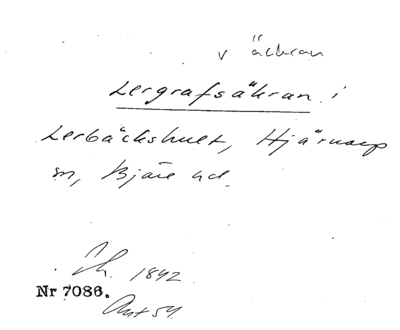 v äckran
Lergrafsäkran i
Lerbäckshult, Hjärnarp
sn, Bjäre hd.
Sk. 1842
Nr 7086.
Ant 54.